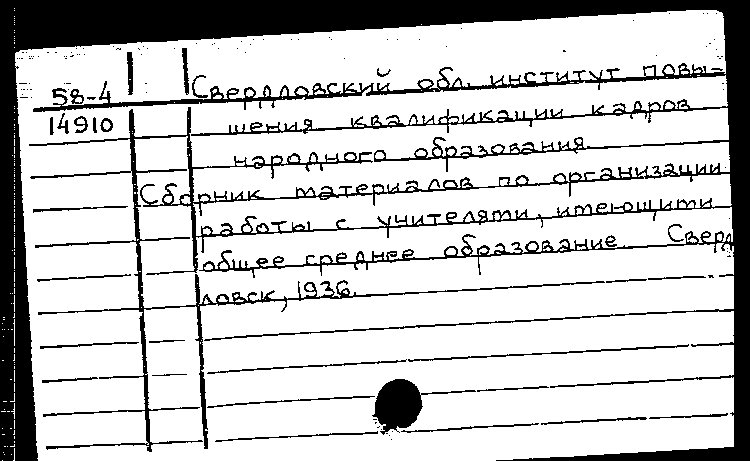 58-4 Свердловский обл. институт повы-
14910 шения квалификации кадров
народного образования.
Сборник материалов по организации
работы с учителями, имеющими
общее среднее образование. Сверд
ловск, 1936.